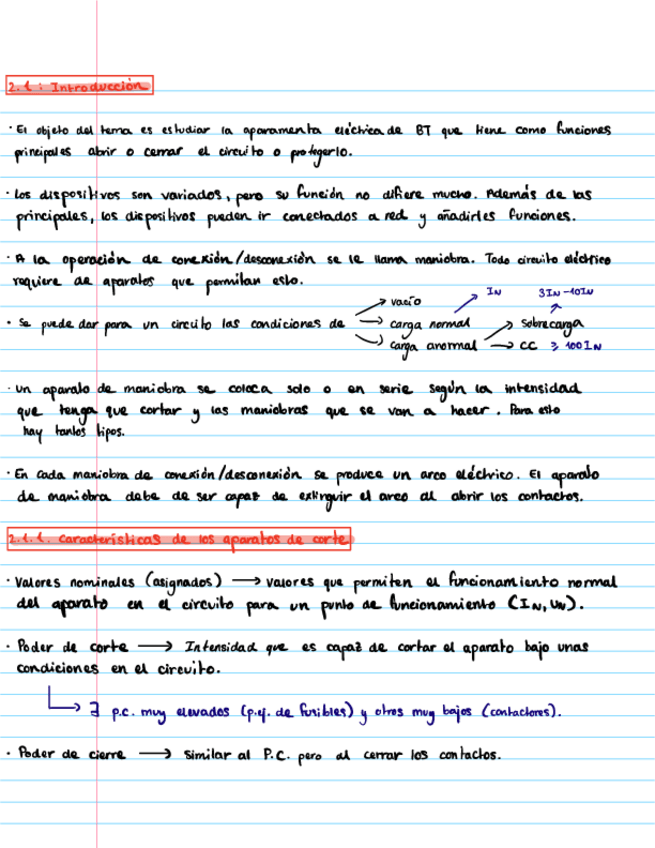 2.1: Introducción
· El objeto del tema es estudiar la aparamenta eléctrica de BT que tiene como funciones
principales abrir o cerrar el circuito o protegerlo.
· Los dispositivos son variados, pero su función no difiere mucho. Además de las
principales, los dispositivos pueden ir conectados a red y añadirles funciones.
· A la operación de conexión/desconexión se le llama maniobra. Todo circuito eléctrico
requiere de aparatos que permitan esto.
· Se puede dar para un circuito las condiciones de → vacío
→ carga normal → IN
→ carga anormal → sobrecarga → 3IN-10IN
→ CC ≥ 100IN
· Un aparato de maniobra se coloca solo o en serie según la intensidad
que tenga que cortar y las maniobras que se van a hacer. Para esto
hay tantos tipos.
· En cada maniobra de conexión/desconexión se produce un arco eléctrico. El aparato
de maniobra debe de ser capaz de extinguir el arco al abrir los contactos.
2.1.1. Características de los aparatos de corte
· Valores nominales (asignados) → valores que permiten el funcionamiento normal
del aparato en el circuito para un punto de funcionamiento (IN, UN).
· Poder de corte → Intensidad que es capaz de cortar el aparato bajo unas
condiciones en el circuito.
→ ∃ p.c. muy elevados (p.ej. de fusibles) y otros muy bajos (contactores).
· Poder de cierre → similar al P.C. pero al cerrar los contactos.